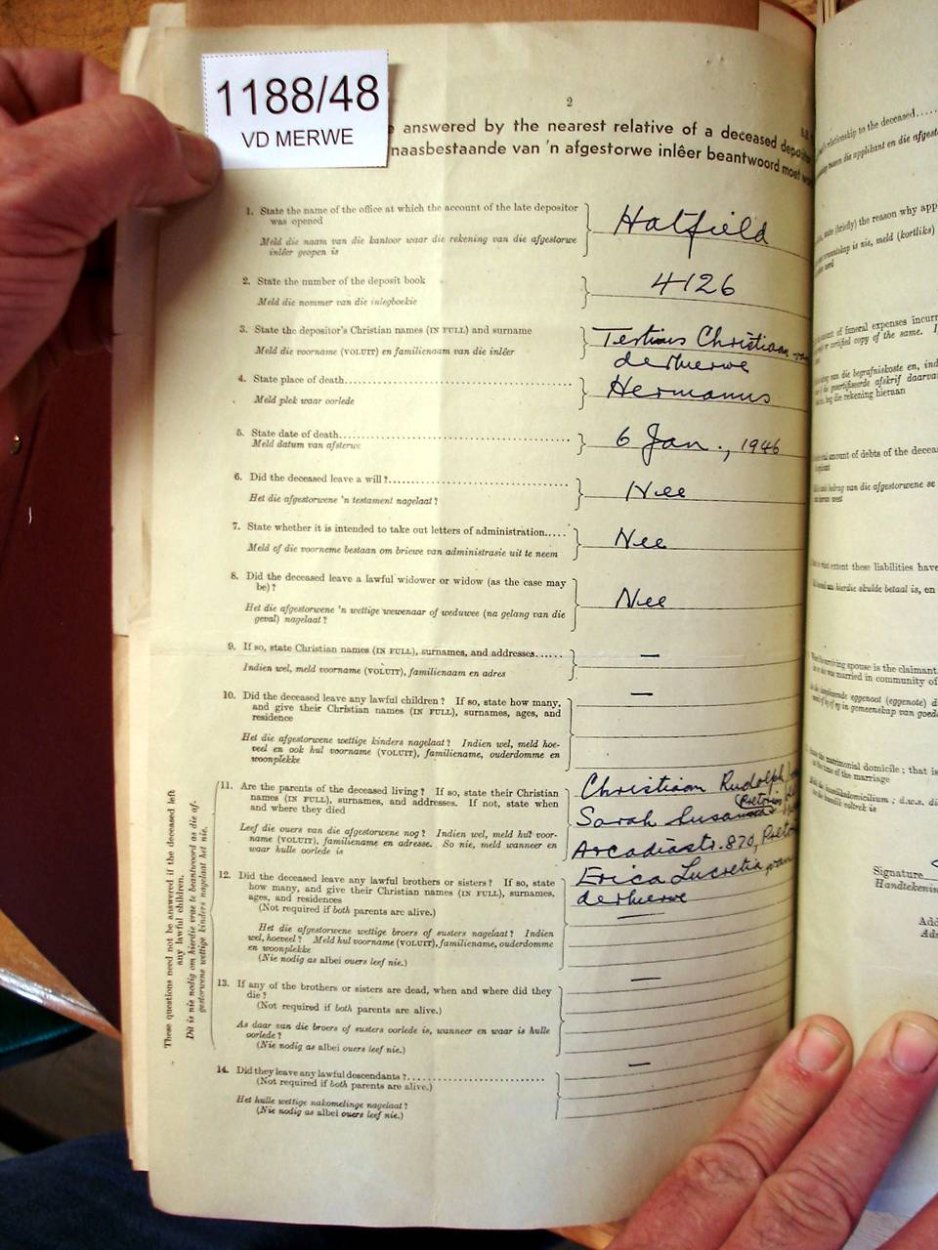 1188/48
VD MERWE
2
answered by the nearest relative of a deceased
naasbestaande van 'n afgestorwe inlêer beantwoord moet
1. State the name of the office at which the account of the late depositor
was opened
Meld die naam van die kantoor waar die rekening van die afgestorwe
inlêer geopen is
Hatfield
2. State the number of the deposit book
Meld die nommer van die inlegboekie
4126
3. State the depositor's Christian names (IN FULL) and surname
Meld die voorname (VOLUIT) en familienaam van die inlêer
Tertius Christiaan van
der Merwe
4. State place of death
Meld plek waar oorlede
Hermanus
5. State date of death
Meld datum van afsterwe
6 Jan., 1946
6. Did the deceased leave a will?
Het die afgestorwene 'n testament nagelaat?
Nee
7. State whether it is intended to take out letters of administration
Meld of die voorneme bestaan om briewe van administrasie uit te neem
Nee
8. Did the deceased leave a lawful widower or widow (as the case may
be)?
Het die afgestorwene 'n wettige wewenaar of weduwee (na gelang van die
geval) nagelaat?
Nee
9. If so, state Christian names (IN FULL), surnames, and addresses
Indien wel, meld voorname (VOLUIT), familienaam en adres
—
10. Did the deceased leave any lawful children? If so, state how many,
and give their Christian names (IN FULL), surnames, ages, and
residence
Het die afgestorwene wettige kinders nagelaat? Indien wel, meld hoe-
veel en ook hul voorname (VOLUIT), familiename, ouderdomme en
woonplekke
—
These questions need not be answered if the deceased left
any lawful children.
Dit is nie nodig om hierdie vrae te beantwoord as die af-
gestorwene wettige kinders nagelaat het nie.
11. Are the parents of the deceased living? If so, state their Christian
names (IN FULL), surnames, and addresses. If not, state when
and where they died
Leef die ouers van die afgestorwene nog? Indien wel, meld hul voor-
name (VOLUIT), familiename en adresse. So nie, meld wanneer en
waar hulle oorlede is
Christiaan Rudolph
Sarah Susanna
Arcadiastr. 820,
12. Did the deceased leave any lawful brothers or sisters? If so, state
how many, and give their Christian names (IN FULL), surnames,
ages, and residences
(Not required if both parents are alive.)
Het die afgestorwene wettige broers of susters nagelaat? Indien
wel, hoeveel? Meld hul voorname (VOLUIT), familiename, ouderdomme
en woonplekke
(Nie nodig as albei ouers leef nie.)
Erica Lucretia van
der Merwe
—
13. If any of the brothers or sisters are dead, when and where did they
die?
(Not required if both parents are alive.)
As daar van die broers of susters oorlede is, wanneer en waar is hulle
oorlede?
(Nie nodig as albei ouers leef nie.)
—
14. Did they leave any lawful descendants?
(Not required if both parents are alive.)
Het hulle wettige nakomelinge nagelaat?
(Nie nodig as albei ouers leef nie.)
—
relationship to the deceased
(briefly) the reason why
is nie, meld (kortliks)
of funeral expenses
certified copy of the same.
van die begrafniskoste en,
afskrif
die rekening hieraan
amount of debts of the
bedrag van die afgestorwene se
extent these liabilities have
hierdie skulde betaal is, en
spouse is the claimant
married in community of
eggenoot (eggenote)
in gemeenskap van
matrimonial domicile; that is
time of the marriage
voltrek is
Signature